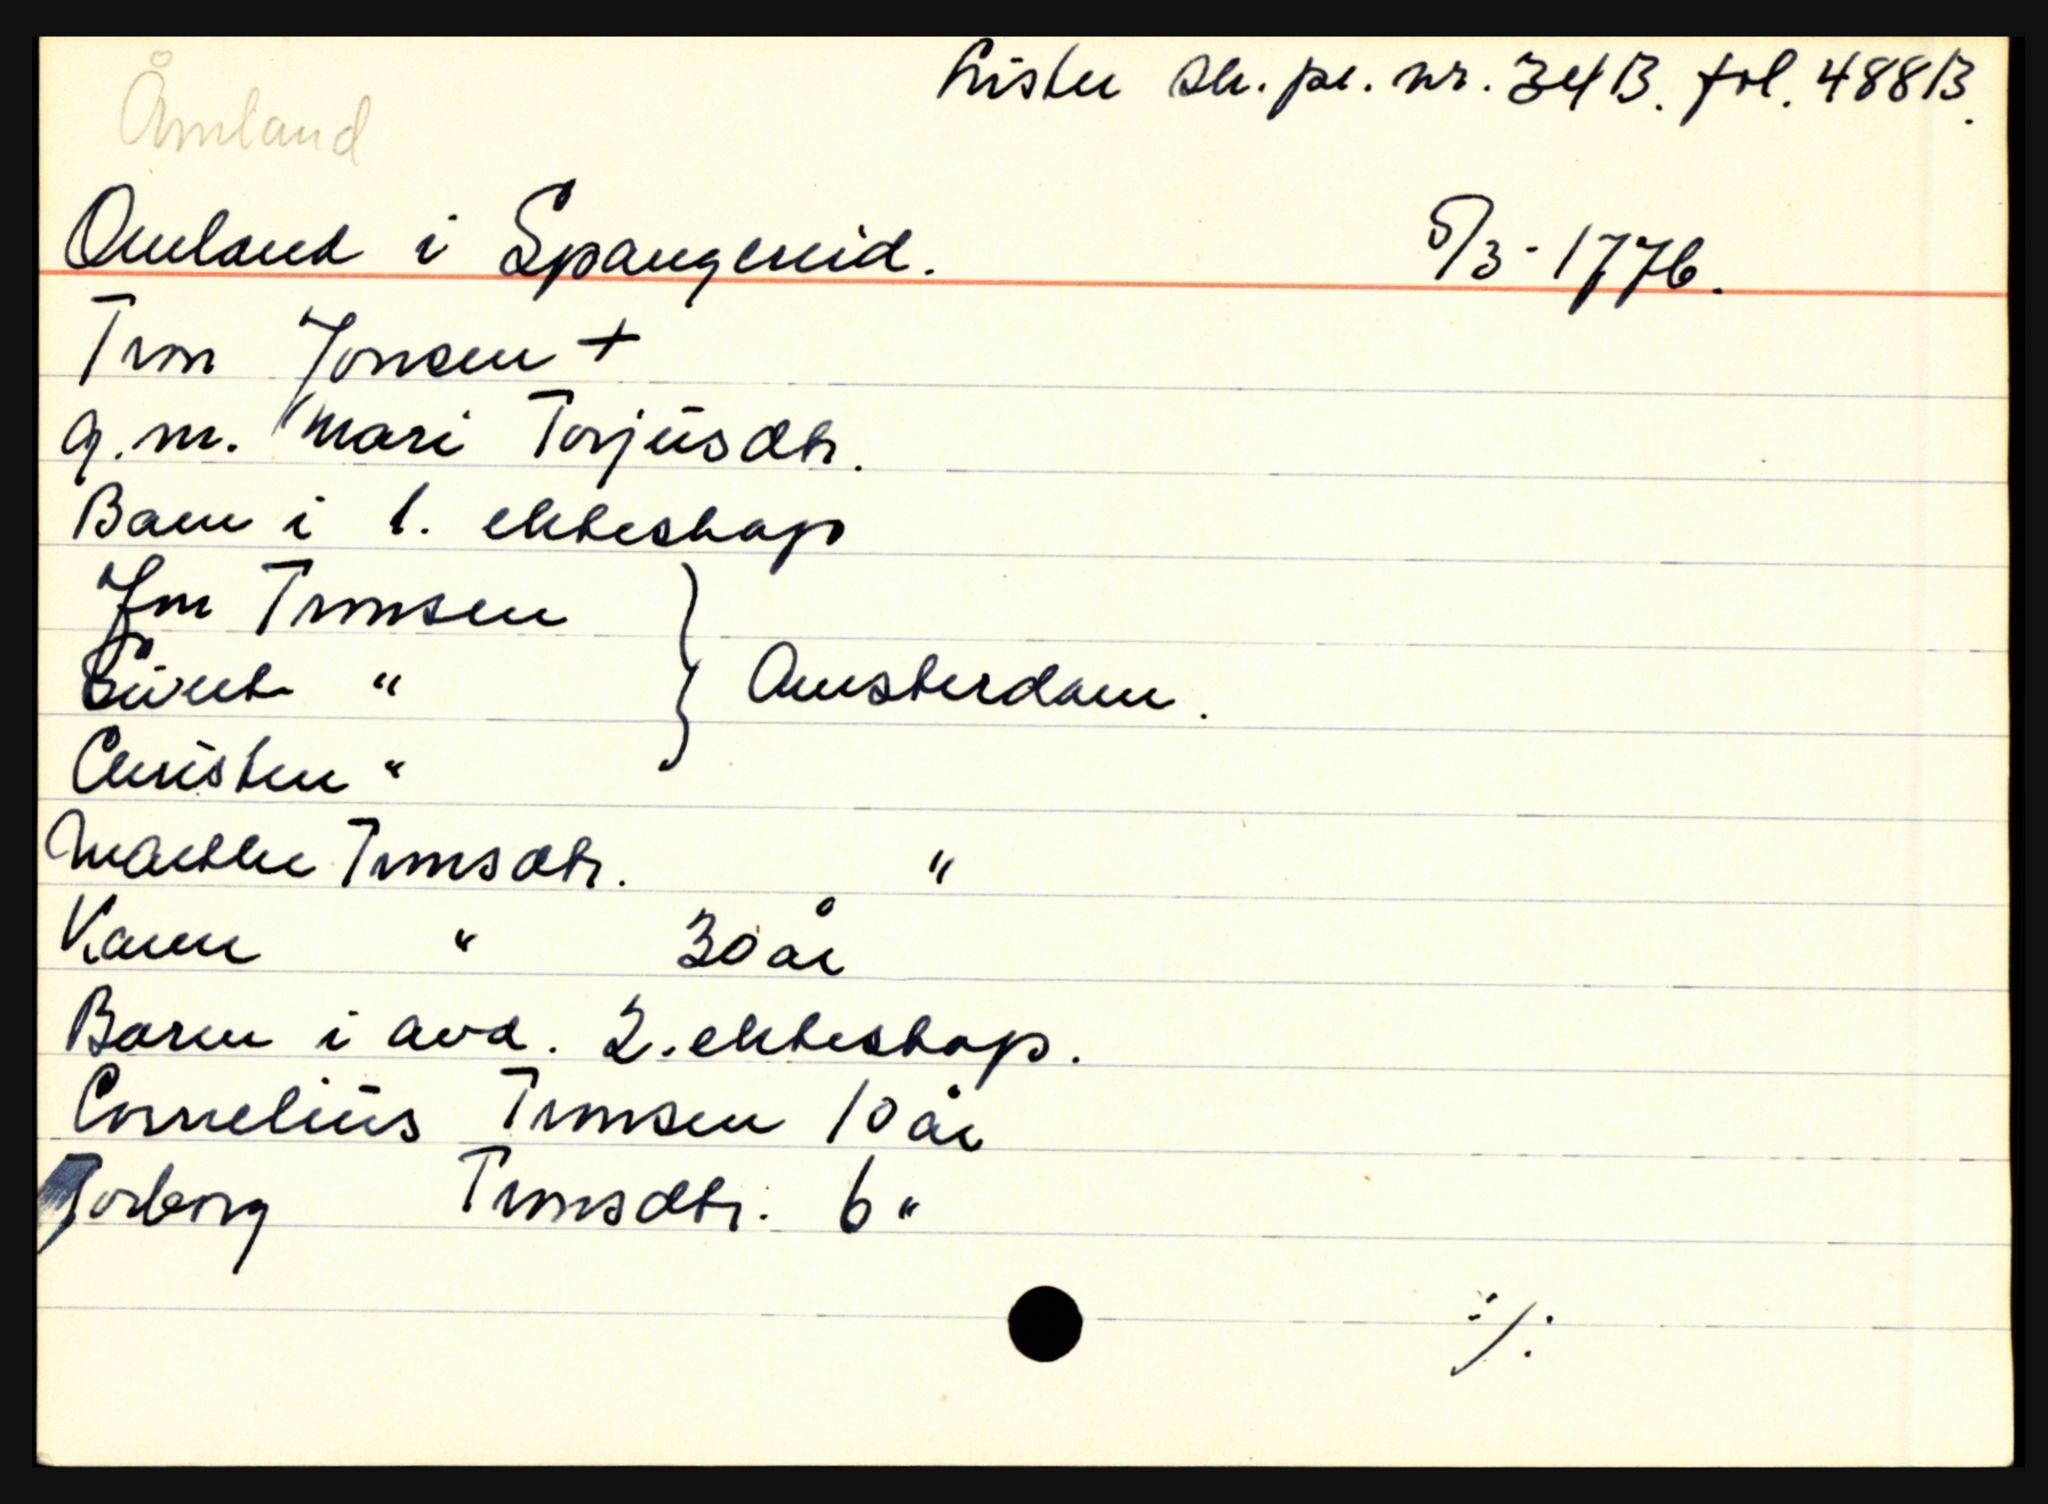 Åmland
Lister sk. pr. nr. 34B. fol. 488B.
Omland i Spangereid. 5/3-1776.
Tron Jonsen +
g. m. Mari Torjusdtr.
Barn i 1. ekteskap
Jon Tronsen
Sivert " } Amsterdam.
Christen "
Marthe Tronsdtr. "
Karen " 30 år
Barn i avd. 2. ekteskap.
Cornelius Tronsen 10 år
Torborg Tronsdtr. 6 "
·/.